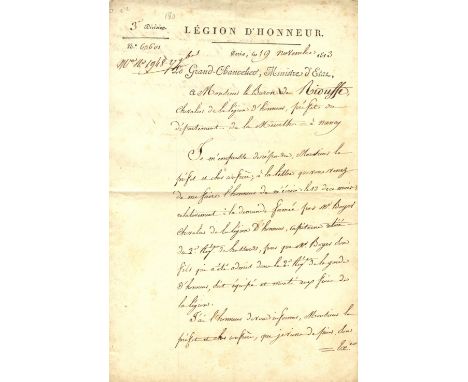 180
3e Division
LÉGION D'HONNEUR.
No. 63601
Paris, le 19 novembre 1813
Le Grand-Chancelier, Ministre d'Etat,
à Monsieur le Baron de Riouffe,
chevalier de la légion d'honneur, préfet du
département de la Meurthe = à Nancy
Je m'empresse de répondre, Monsieur le
préfet et cher confrère, à la lettre que vous venez
de me faire l'honneur de m'écrire le 13 de ce mois
relativement à la demande formée par Mr Boyer
chevalier de la légion d'honneur, capitaine
du 2e Régt de hussards, pour que Mr Boyer son
fils qui a été admis dans le 2e Régt de la garde
d'honneur, soit équipé et monté aux frais de
la légion.
J'ai l'honneur de vous informer, Monsieur le
préfet et cher confrère, que je viens de faire